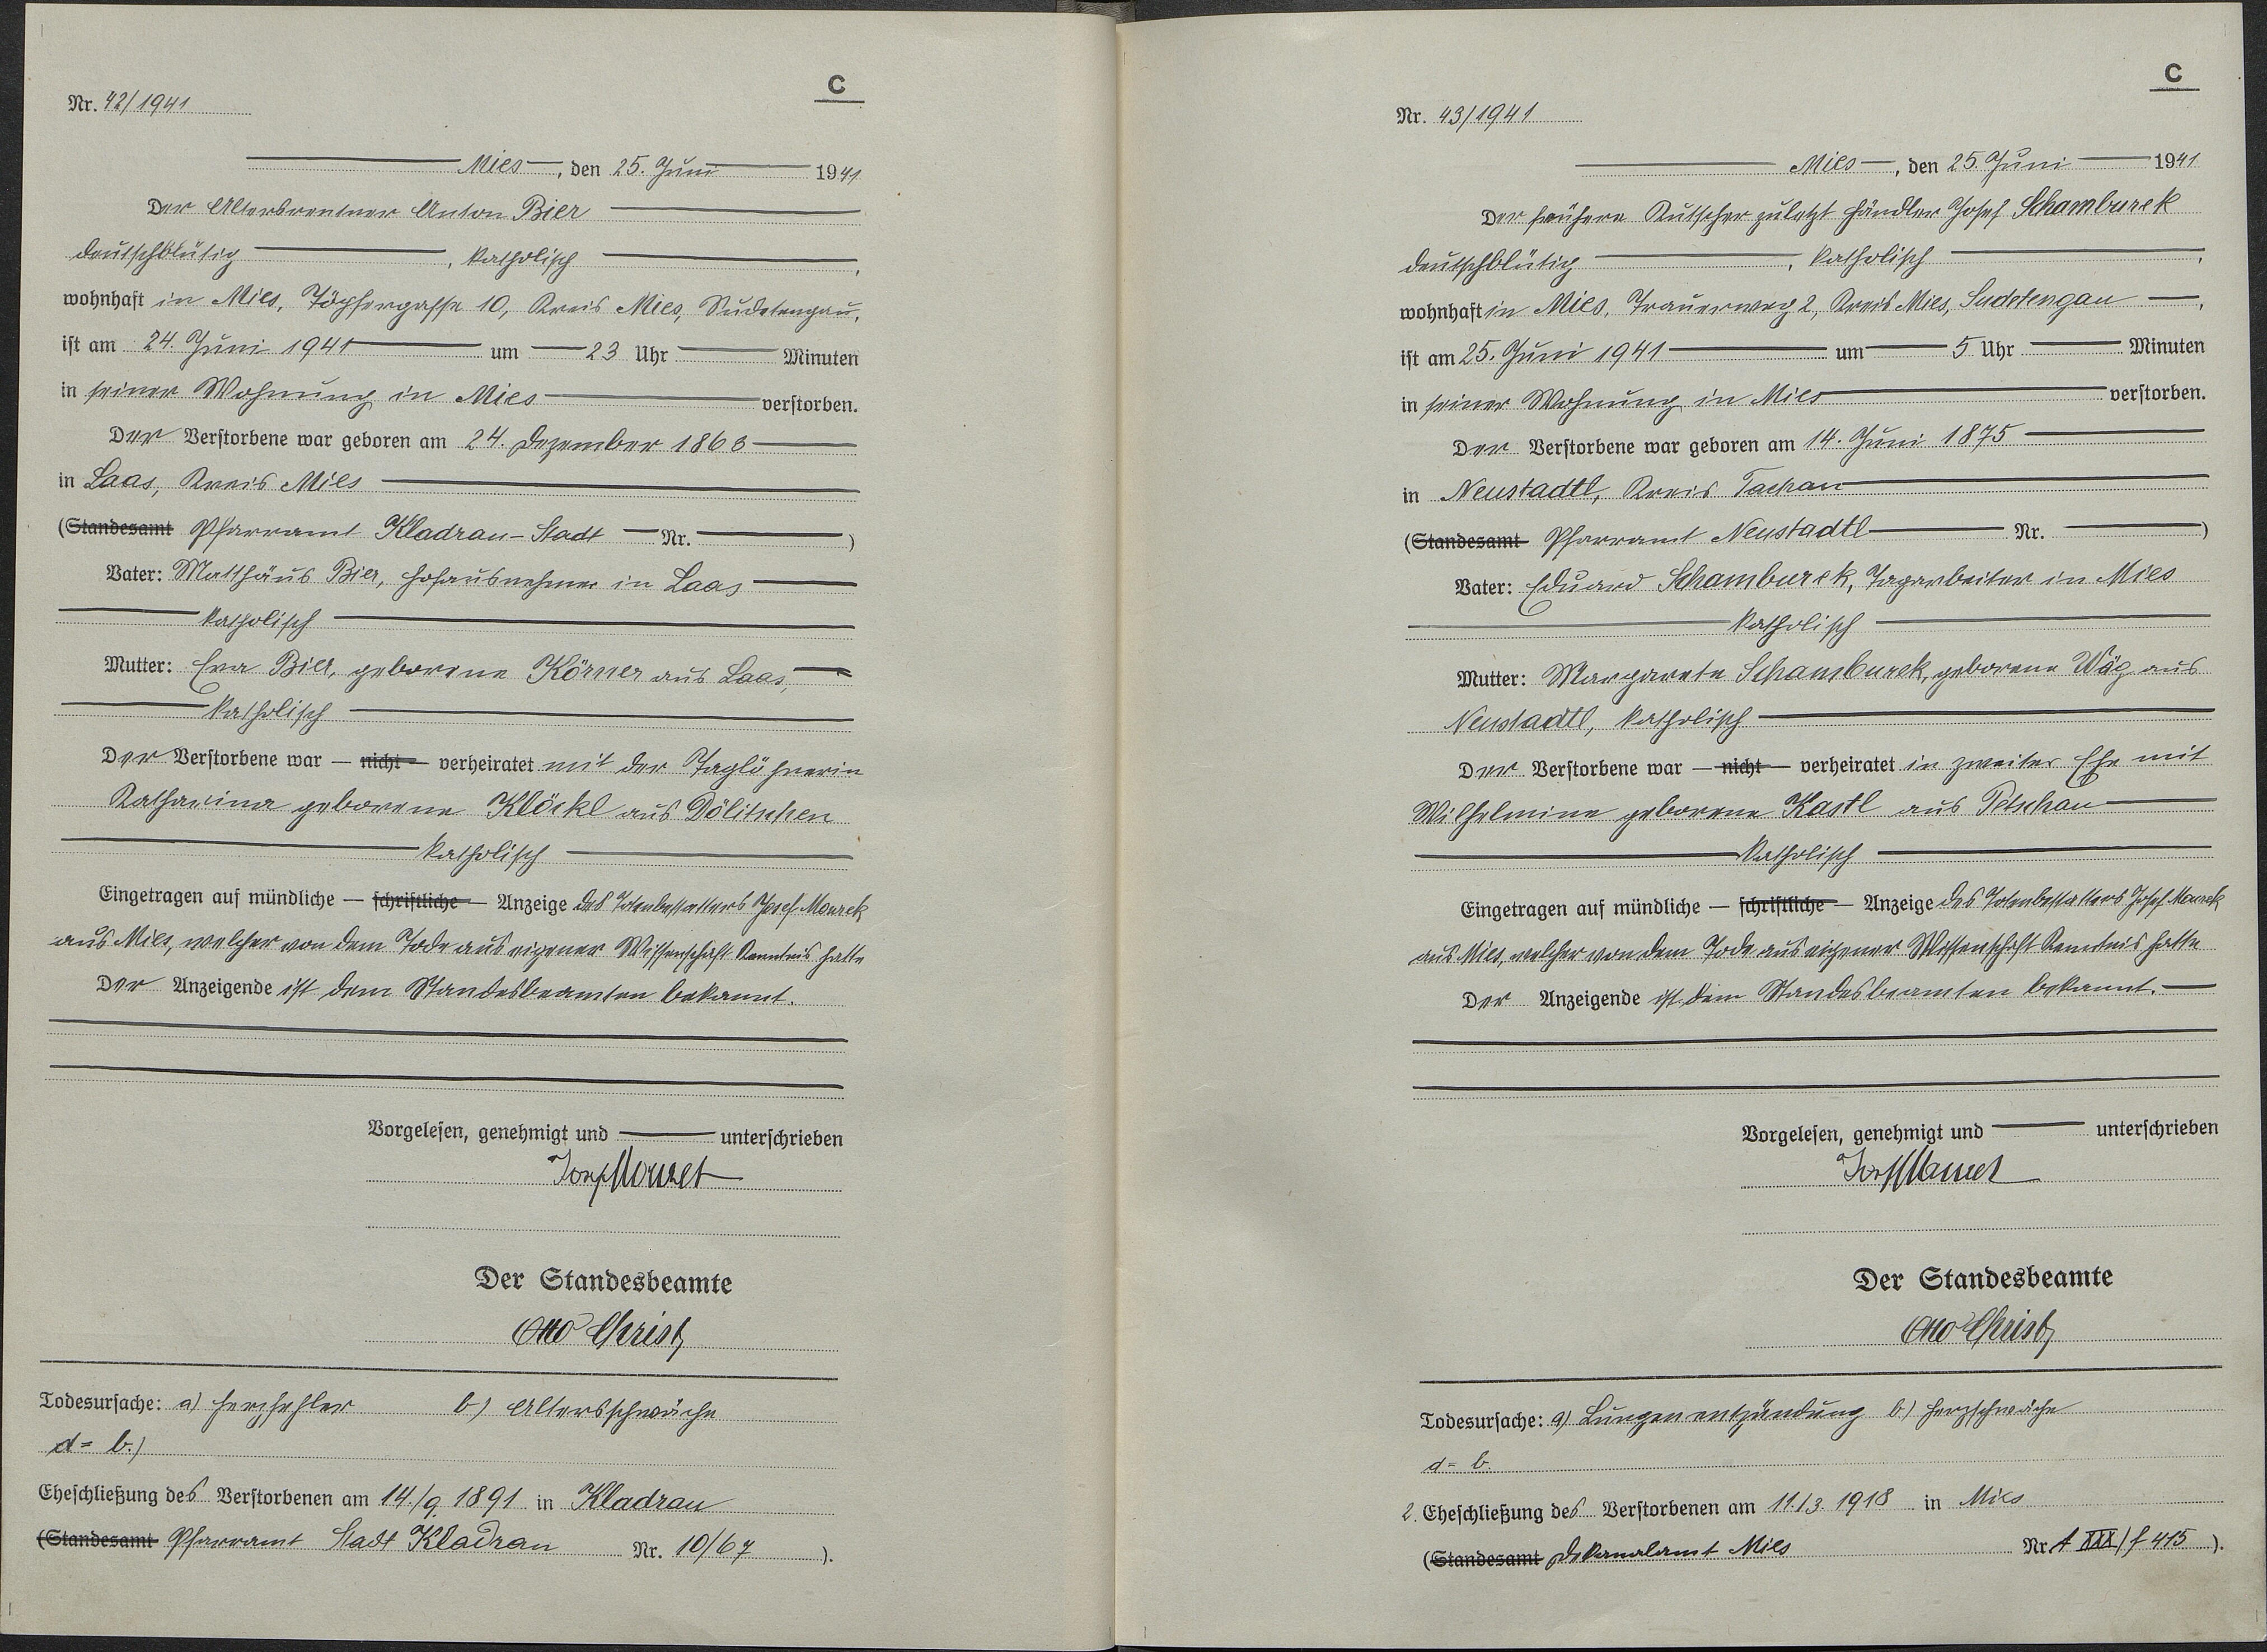 C
Nr. 42/1941
Mies, den 25. Juni 1941
Der Altersrentner Anton Bier
deutschblütig, katholisch,
wohnhaft in Mies, Töpfergasse 10, Kreis Mies, Sudetengau,
ist am 24. Juni 1941 um 23 Uhr Minuten
in seiner Wohnung in Mies verstorben.
Der Verstorbene war geboren am 24. Dezember 1863
in Laas, Kreis Mies
(Standesamt Pfarramt Kladrau-Stadt Nr. )
Vater: Matthäus Bier, Hofausnehmer in Laas
katholisch
Mutter: Eva Bier, geborene Körner aus Laas,
katholisch
Der Verstorbene war — nicht — verheiratet mit der Taglöhnerin
Katharina geborene Klöckl aus Dölitschen
katholisch
Eingetragen auf mündliche — schriftliche — Anzeige des Totenbestatters Josef Mourek
aus Mies, welcher von dem Tode aus eigener Wissenschaft Kenntnis hatte
Der Anzeigende ist dem Standesbeamten bekannt.
Vorgelesen, genehmigt und unterschrieben
Josef Mourek
Der Standesbeamte
Otto Christ
Todesursache: a) Herzfehler b) Altersschwäche
d = b.)
Eheschließung des Verstorbenen am 14./9. 1891 in Kladrau
(Standesamt Pfarramt Stadt Kladrau Nr. 10/67 ).
C
Nr. 43/1941
Mies, den 25. Juni 1941
Der frühere Kutscher zuletzt Händler Josef Schamburek
deutschblütig, katholisch,
wohnhaft in Mies, Trauerweg 2, Kreis Mies, Sudetengau,
ist am 25. Juni 1941 um 5 Uhr Minuten
in seiner Wohnung in Mies verstorben.
Der Verstorbene war geboren am 14. Juni 1875
in Neustadtl, Kreis Tachau
(Standesamt Pfarramt Neustadtl Nr. )
Vater: Eduard Schamburek, Tagarbeiter in Mies
katholisch
Mutter: Margarete Schamburek, geborene Wäg aus
Neustadtl, katholisch
Der Verstorbene war — nicht — verheiratet in zweiter Ehe mit
Wilhelmine geborene Kastl aus Petschau
katholisch
Eingetragen auf mündliche — schriftliche — Anzeige des Totenbestatters Josef Mourek
aus Mies, welcher von dem Tode aus eigener Wissenschaft Kenntnis hatte
Der Anzeigende ist dem Standesbeamten bekannt.
Vorgelesen, genehmigt und unterschrieben
Josef Mourek
Der Standesbeamte
Otto Christ
Todesursache: a) Lungenentzündung b) Herzschwäche
d = b.
2. Eheschließung des Verstorbenen am 11./3. 1918 in Mies
(Standesamt Dekanalamt Mies Nr. A XXX/f 415 ).